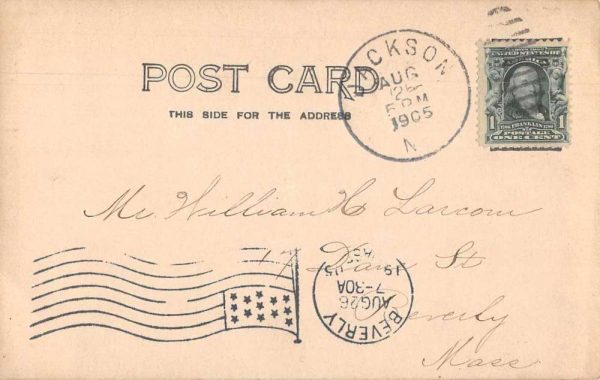 POST CARD
THIS SIDE FOR THE ADDRESS
JACKSON
AUG
5 PM
1905
N
UNITED STATES OF
1 FRANKLIN 1
POSTAGE
ONE CENT
Mr. William H Larcom
17 Dane St
Beverly
Mass
BEVERLY
AUG 26
7-30A
1905
MASS